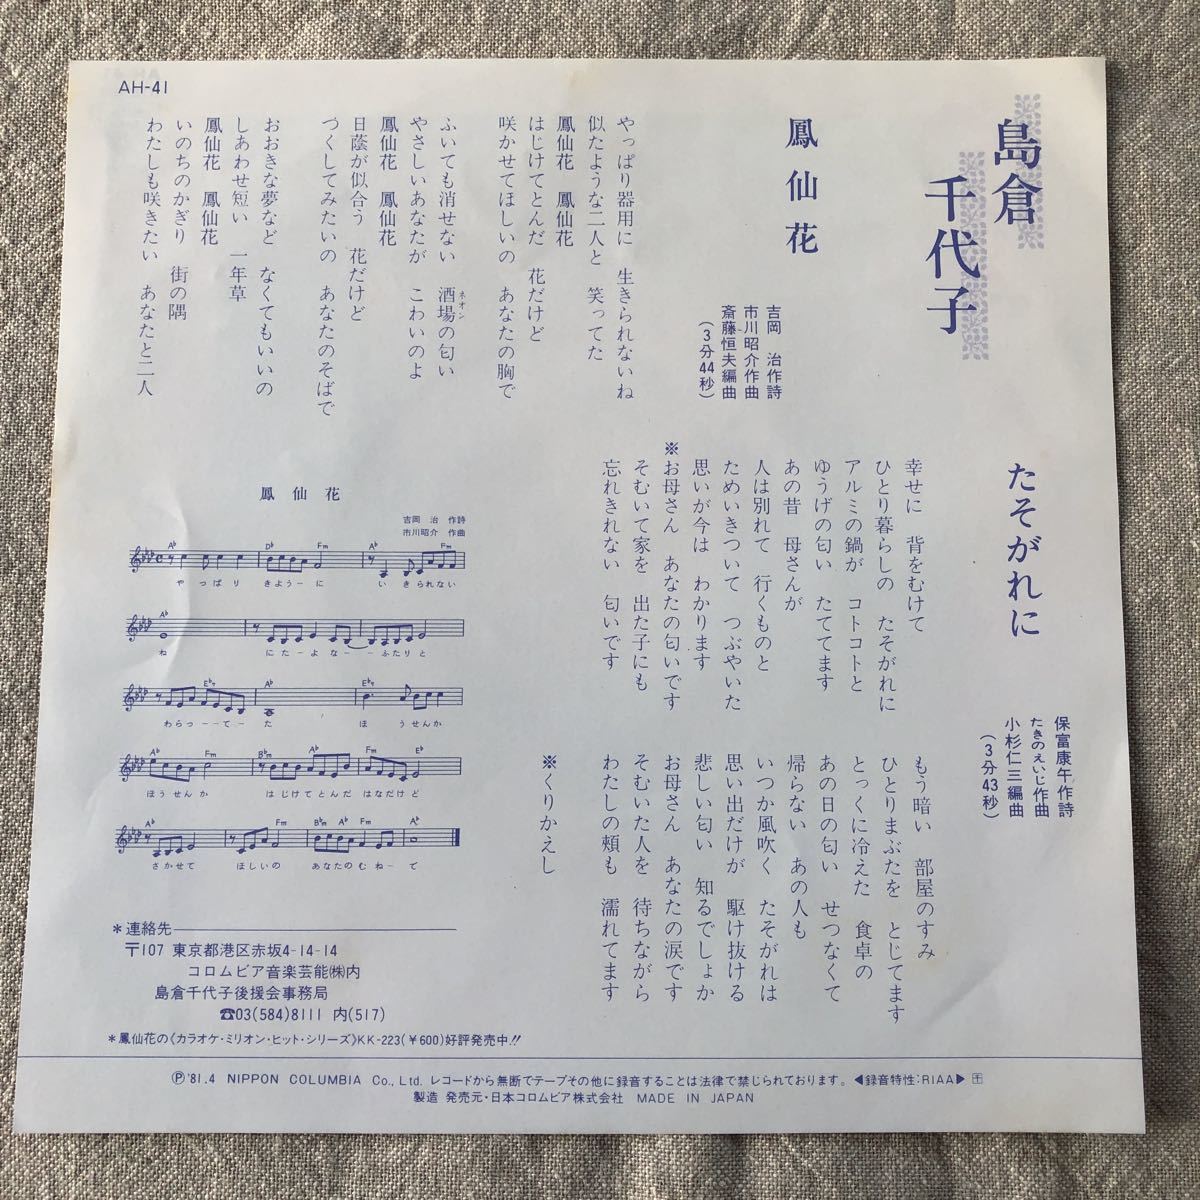 AH-41
島倉
千代子
鳳仙花
吉岡 治作詩
市川昭介作曲
斎藤恒夫編曲
(3分44秒)
やっぱり器用に 生きられないね
似たような二人と 笑ってた
鳳仙花 鳳仙花
はじけてとんだ 花だけど
咲かせてほしいの あなたの胸で
ふいても消せない 酒場の匂い
ネオン
やさしいあなたが こわいのよ
鳳仙花 鳳仙花
日蔭が似合う 花だけど
つくしてみたいの あなたのそばで
おおきな夢など なくてもいいの
しあわせ短い 一年草
鳳仙花 鳳仙花
いのちのかぎり 街の隅
わたしも咲きたい あなたと二人
たそがれに
保富康午作詩
たきのえいじ作曲
小杉仁三編曲
(3分43秒)
幸せに 背をむけて
ひとり暮らしの たそがれに
アルミの鍋が コトコトと
ゆうげの匂い たててます
あの昔 母さんが
人は別れて 行くものと
ためいきついて つぶやいた
思いが今は わかります
※お母さん あなたの匂いです
そむいて家を 出た子にも
忘れきれない 匂いです
もう暗い 部屋のすみ
ひとりまぶたを とじてます
とっくに冷えた 食卓の
あの日の匂い せつなくて
帰らない あの人も
いつか風吹く たそがれは
思い出だけが 駆け抜ける
悲しい匂い 知るでしょか
お母さん あなたの涙です
そむいた人を 待ちながら
わたしの頬も 濡れてます
※くりかえし
鳳仙花
吉岡 治 作詩
市川昭介 作曲
A♭ D♭ Fm A♭ Fm
やっぱり きよう-に いきられない
A♭
ね にた-よな--ふたりと
E♭7 A♭ E♭7
わらっ--て-た ほ うせんか
A♭ Fm B♭m A♭ Fm E♭
ほうせんか はじけてとんだ はなだけど
A♭ Fm B♭m A♭ Fm A♭
さかせて ほしいの あなたのむね-で
*連絡先
〒107 東京都港区赤坂4-14-14
コロムビア音楽芸能㈱内
島倉千代子後援会事務局
☎03(584)8111 内(517)
*鳳仙花の《カラオケ・ミリオン・ヒット・シリーズ》KK-223(￥600)好評発売中!!
Ⓟ'81.4 NIPPON COLUMBIA Co., Ltd. レコードから無断でテープその他に録音することは法律で禁じられております。◀録音特性:RIAA▶
製造 発売元・日本コロムビア株式会社 MADE IN JAPAN